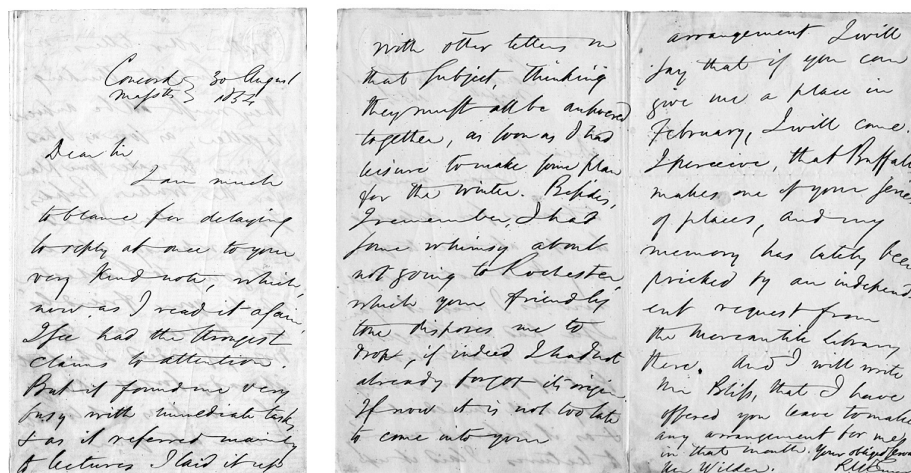 Concord } 30 August
Massts } 1854
Dear Sir
I am much
to blame for delaying
to reply at once to your
very kind note, which,
now as I read it again,
I see had the strongest
claims to attention.
But it found me very
busy with immediate tasks,
& as it referred mainly
to lectures I laid it up
with other letters on
that subject, thinking
they must all be answered
together, as soon as I had
leisure to make some plan
for the winter. Besides,
I remember, I had
some whimsy about
not going to Rochester,
which your friendly
tone disposes me to
drop, if indeed I had not
already forgot its origin.
If now it is not too late
to come into your
arrangement I will
say that if you can
give me a place in
February, I will come.
I perceive, that Buffalo
makes one of your series
of places, and my
memory has lately been
pricked by an independ
ent request from
the Mercantile Library
there. And I will write
Mr Bliss, that I have
offered you leave to make
any arrangement for me
in that month. Your obliged servt
Mr Wilder.